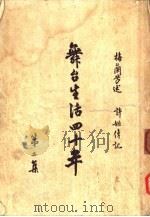 梅蘭芳述
許姬傳記
舞台生活四十年
第一集